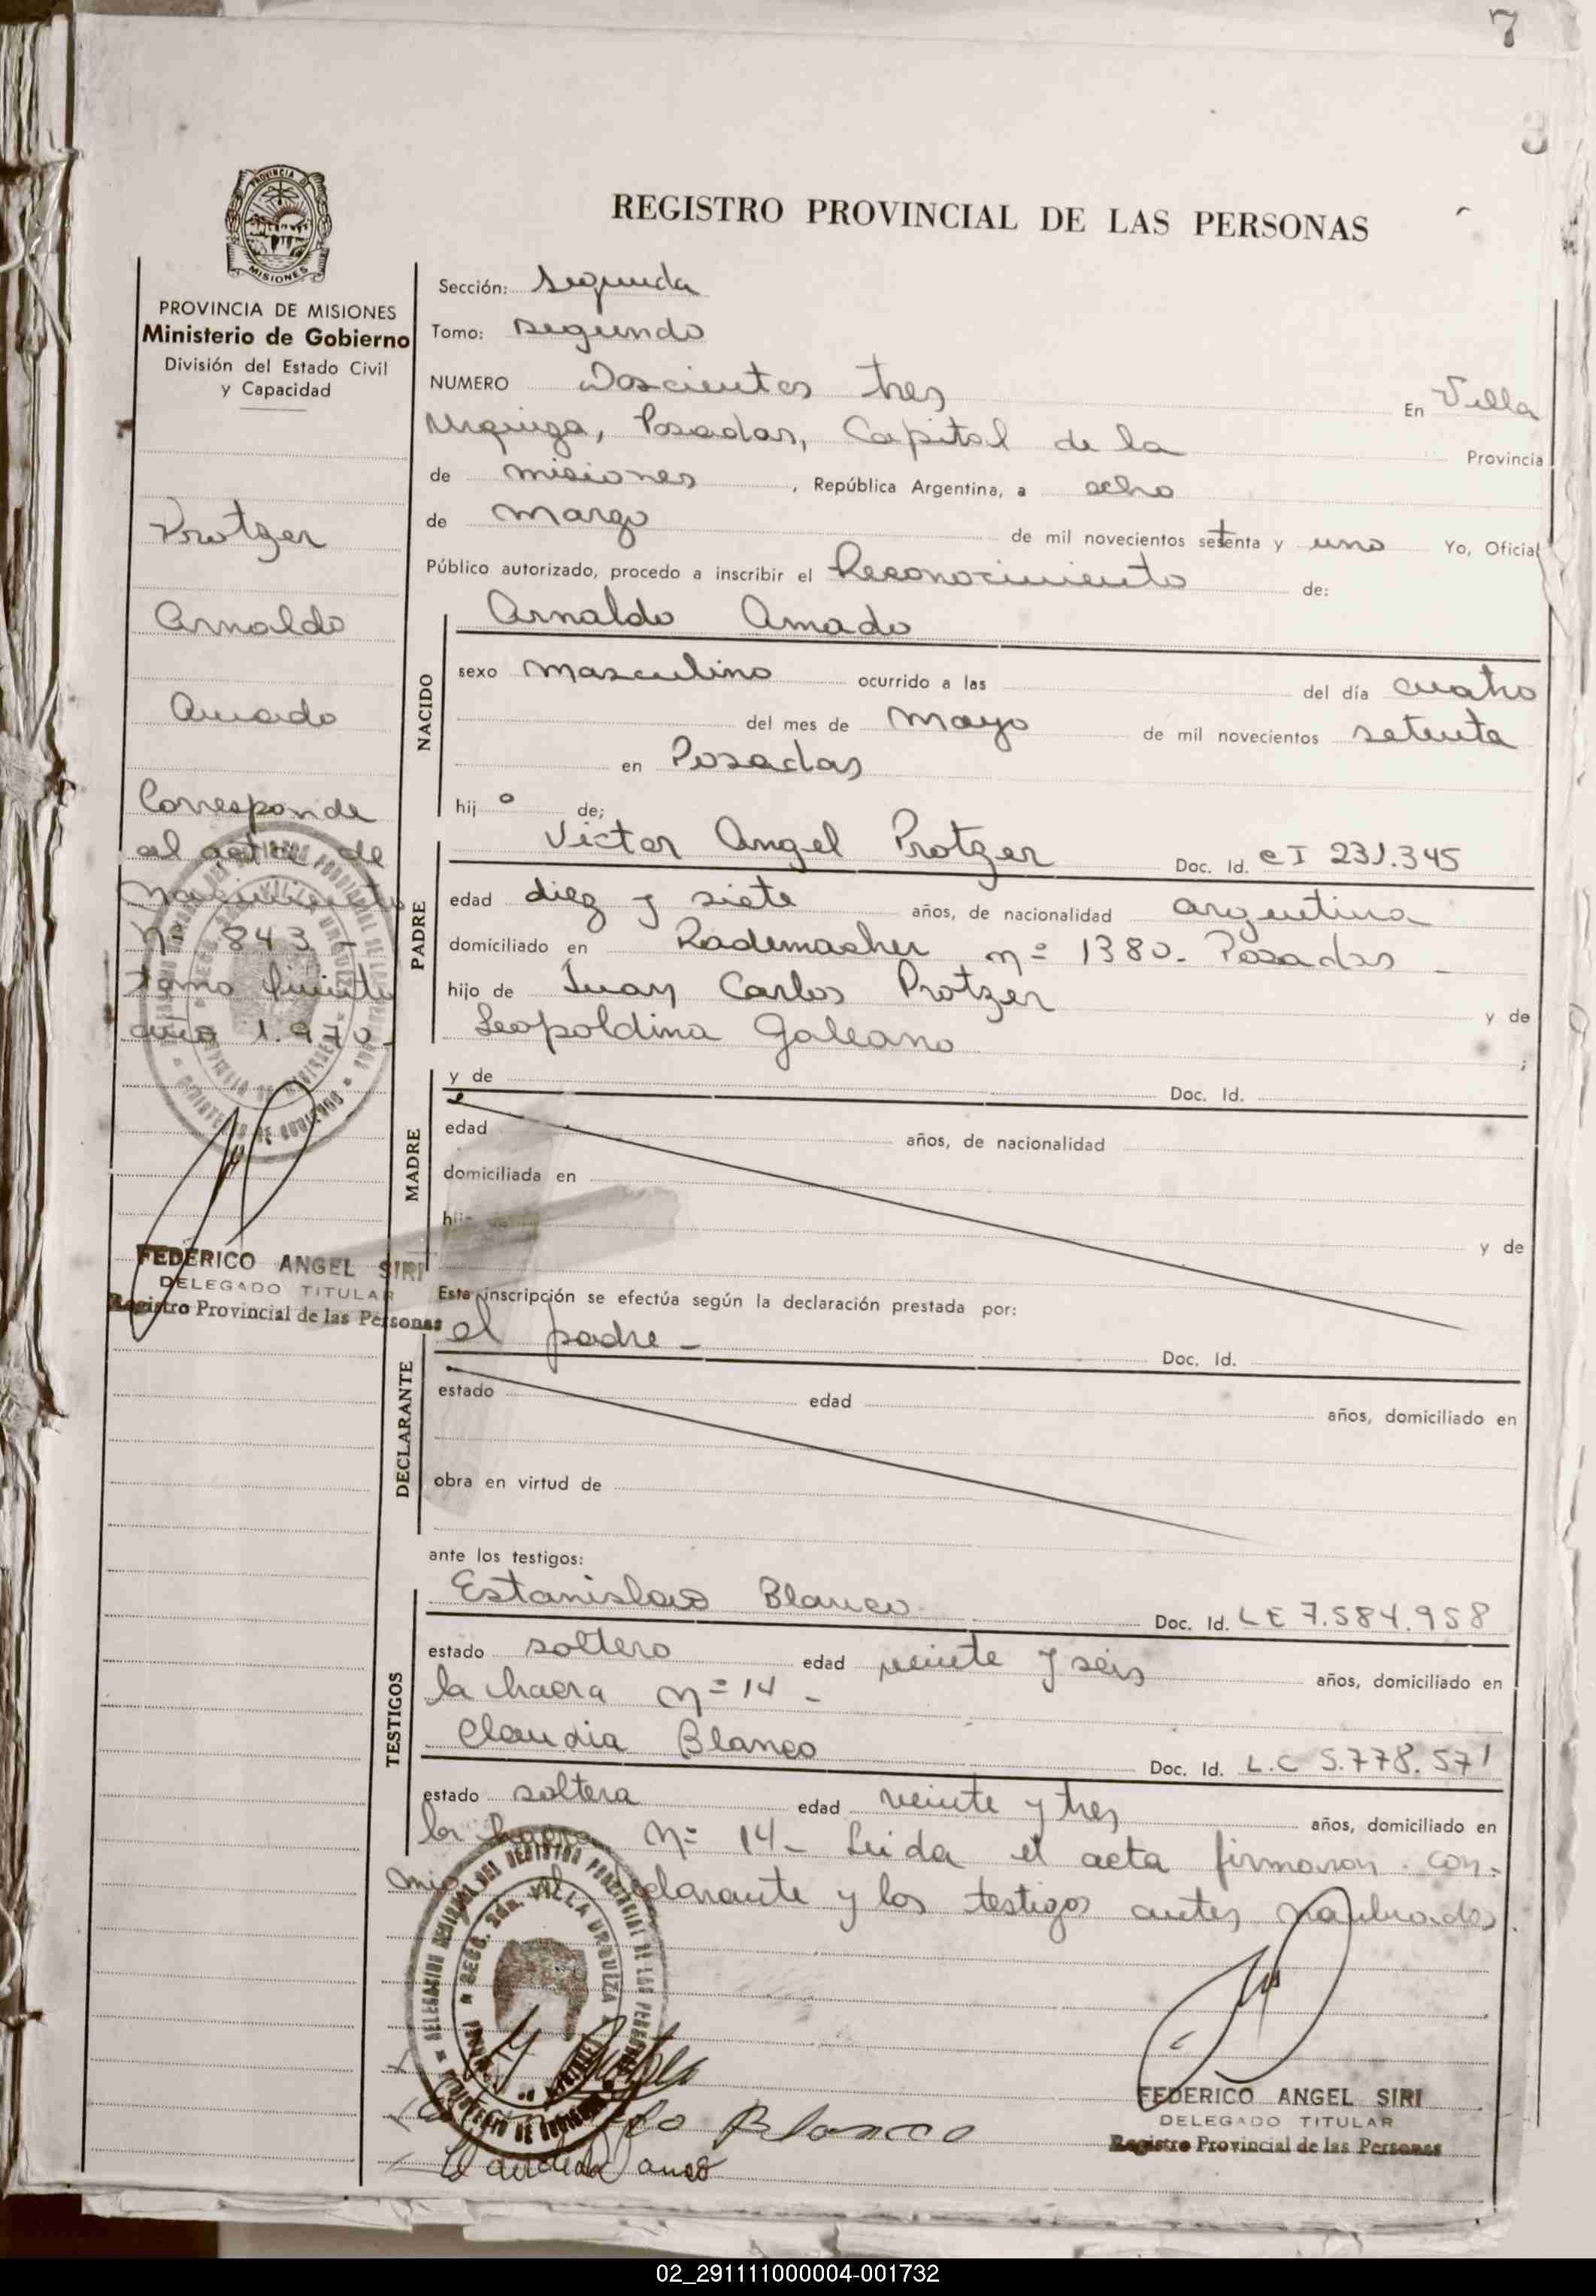 7
3
PROVINCIA DE MISIONES
Ministerio de Gobierno
División del Estado Civil
y Capacidad
Protzer
Arnaldo
Amado
Corresponde
al acta de
Nacimiento
Nº 843 -
tomo Quinto
año 1.970.
FEDERICO ANGEL SIRI
DELEGADO TITULAR
Registro Provincial de las Personas
REGISTRO PROVINCIAL DE LAS PERSONAS
Sección: Segunda
Tomo: segundo
NUMERO Doscientos tres En Villa
Urquiza, Posadas, Capital de la Provincia
de misiones, República Argentina, a ocho
de marzo de mil novecientos setenta y uno Yo, Oficial
Público autorizado, procedo a inscribir el Reconocimiento de:
NACIDO
Arnaldo Amado
sexo masculino ocurrido a las del día cuatro
del mes de mayo de mil novecientos setenta
en Posadas
hij o de;
PADRE
Victor Angel Protzer Doc. Id. CI 231.345
edad diez y siete años, de nacionalidad argentina
domiciliado en Rademacher nº 1380. Posadas -
hijo de Juan Carlos Protzer y de
Leopoldina Galeano ;
MADRE
y de Doc. Id.
edad años, de nacionalidad
domiciliada en
hija de y de
Esta inscripción se efectúa según la declaración prestada por:
DECLARANTE
el padre - Doc. Id.
estado edad años, domiciliado en
obra en virtud de
ante los testigos:
TESTIGOS
Estanislao Blanco Doc. Id. LE 7.584.958
estado soltero edad veinte y seis años, domiciliado en
la chacra nº 14 -
Claudia Blanco Doc. Id. L.C 5.778.571
estado soltera edad veinte y tres años, domiciliado en
la chacra nº 14 - Leida el acta firmaron con-
migo el declarante y los testigos antes nombrados.
Blanco
FEDERICO ANGEL SIRI
DELEGADO TITULAR
Registro Provincial de las Personas
02_291111000004-001732